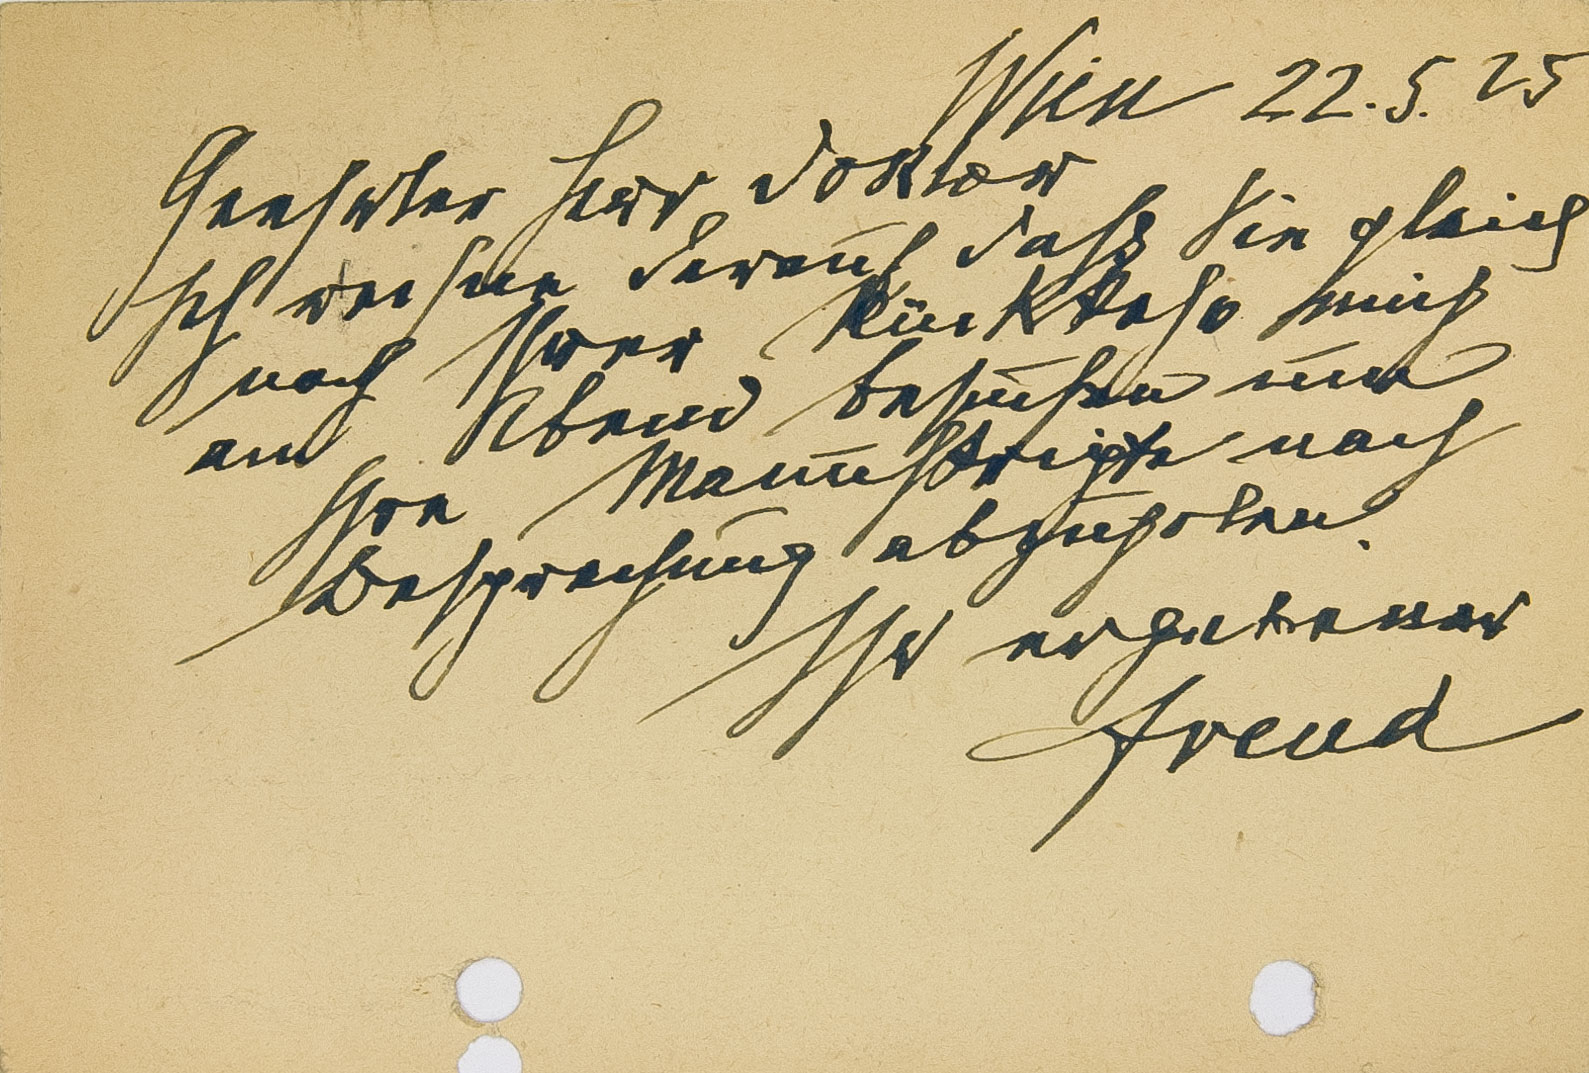 Wien 22.5.25
Geehrter Herr Doktor
Ich rechne darauf daß Sie gleich
nach Ihrer Rückkehr mich
am Abend besuchen um
Ihre Manuskripte nach
Besprechung abzuholen.
Ihr ergebener
Freud